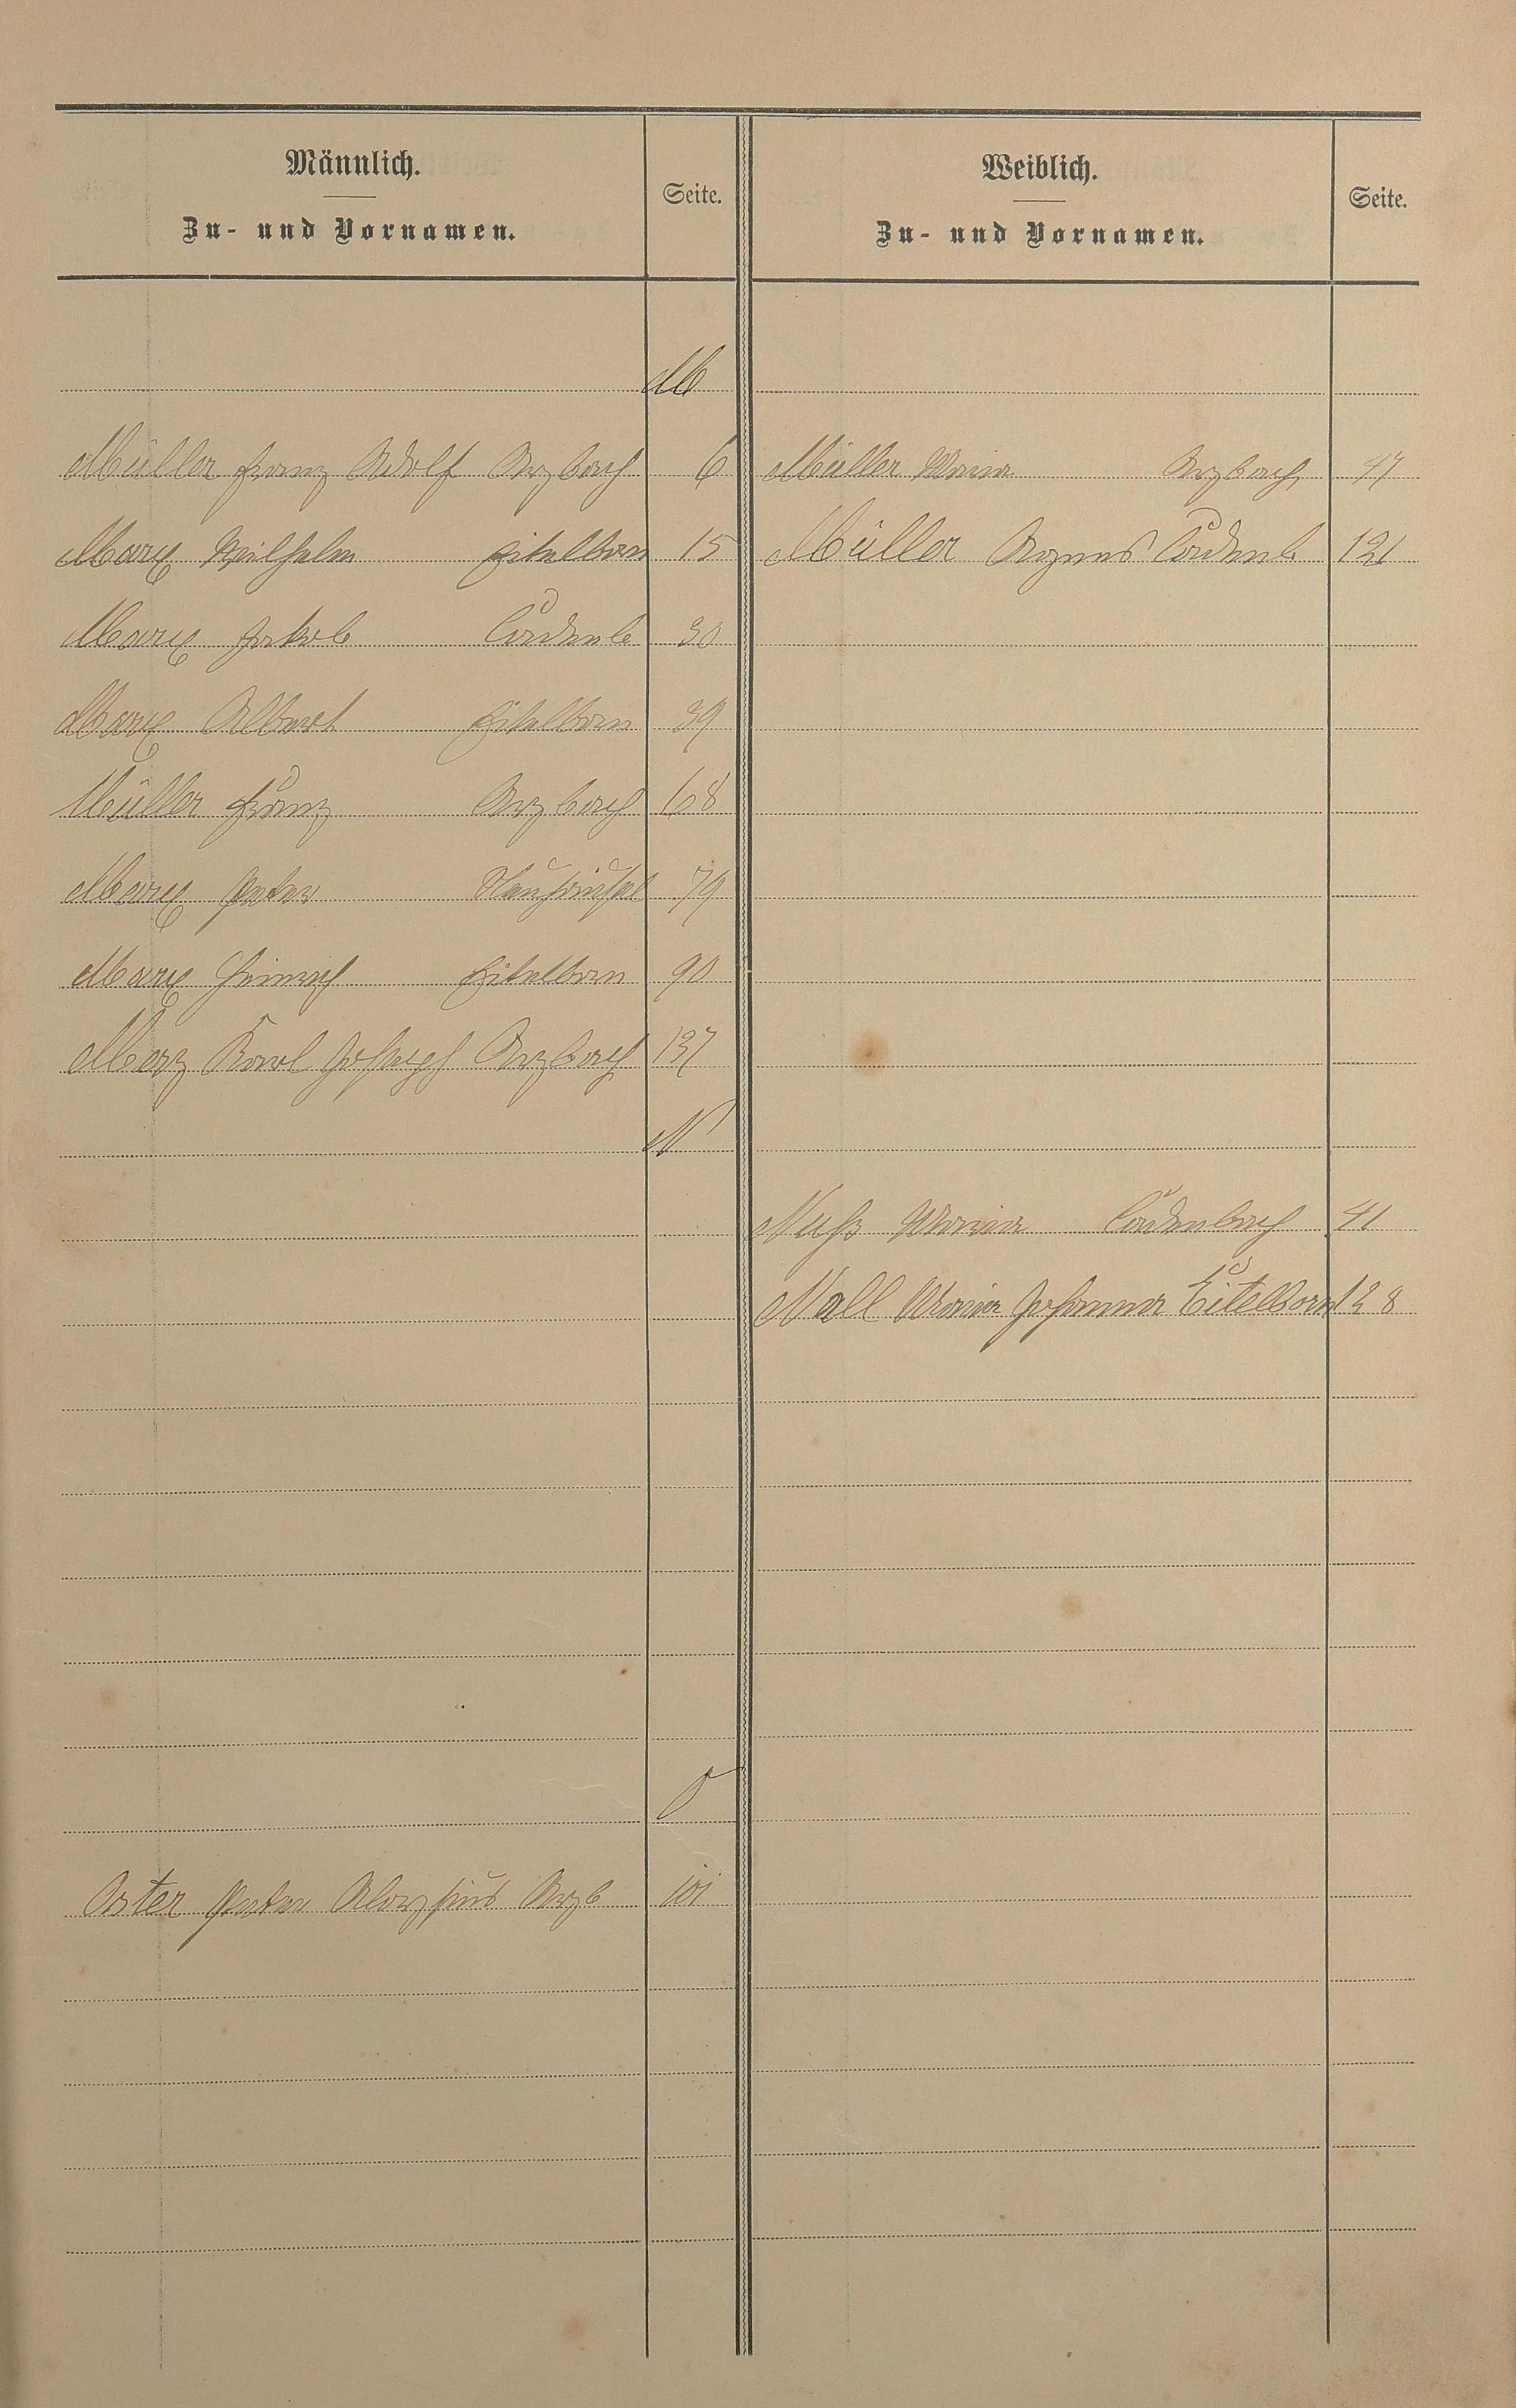 Männlich.
Zu- und Vornamen.
Seite.
Weiblich.
Zu- und Vornamen.
Seite.
M
Müller Franz Adolf Arzbach 6
Müller Maria Arzbach 47
Marx Wilhelm Eitelborn 15
Müller Agnes Cadenb 121
Marx Jakob Cadenb 30
Marx Albert Eitelborn 39
Müller Franz Arzbach 68
Marx Peter Neuhäusel 79
Marx Heinrich Eitelborn 90
Marz Karl Joseph Arzbach 137
N
Nuß Maria Cadenbach 41
Nall Maria Johanna Eitelborn 128
O
Oster Peter Aloysius Arzb 101